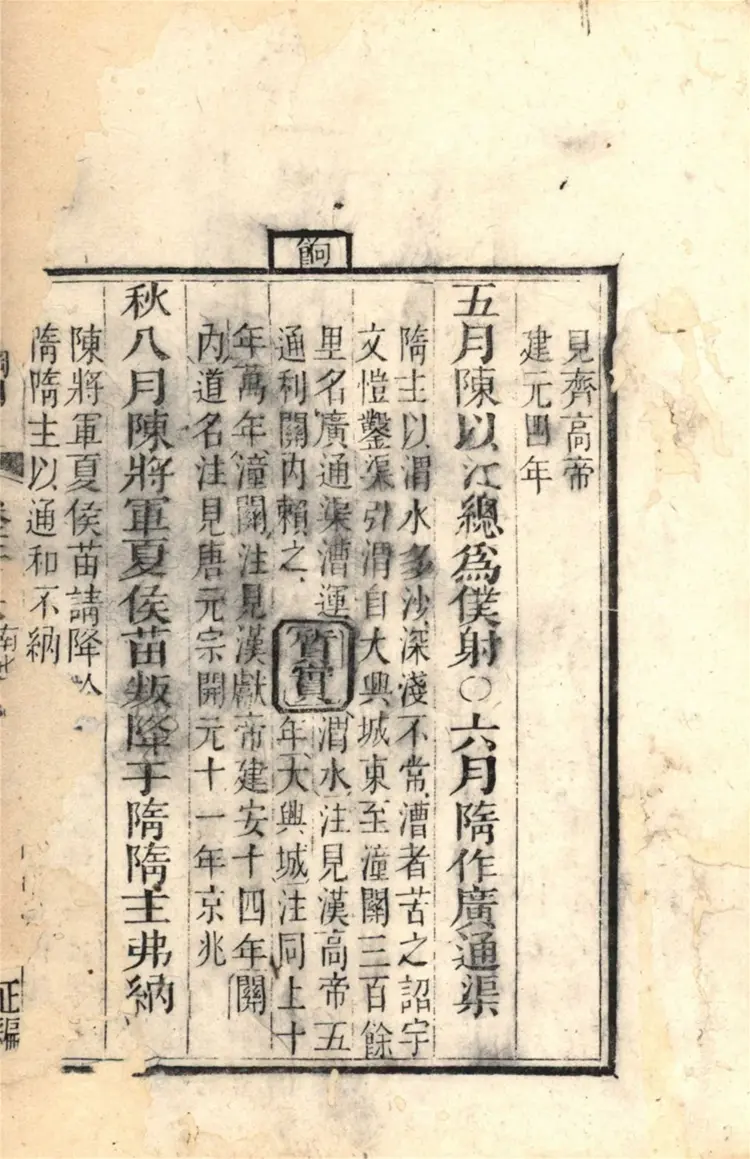 餉
見齊高帝
建元四年
五月陳以江總爲僕射○六月隋作廣通渠
隋主以渭水多沙深淺不常漕者苦之詔宇
文愷鑿渠引渭自大興城東至潼關三百餘
里名廣通渠漕運
通利關内賴之
質實
渭水注見漢高帝五
年大興城注同上十
年萬年潼關注見漢獻帝建安十四年關
内道名注見唐元宗開元十一年京兆
秋八月陳將軍夏侯苗叛降于隋隋主弗納
陳將軍夏侯苗請降
隋隋主以通和不納
正編